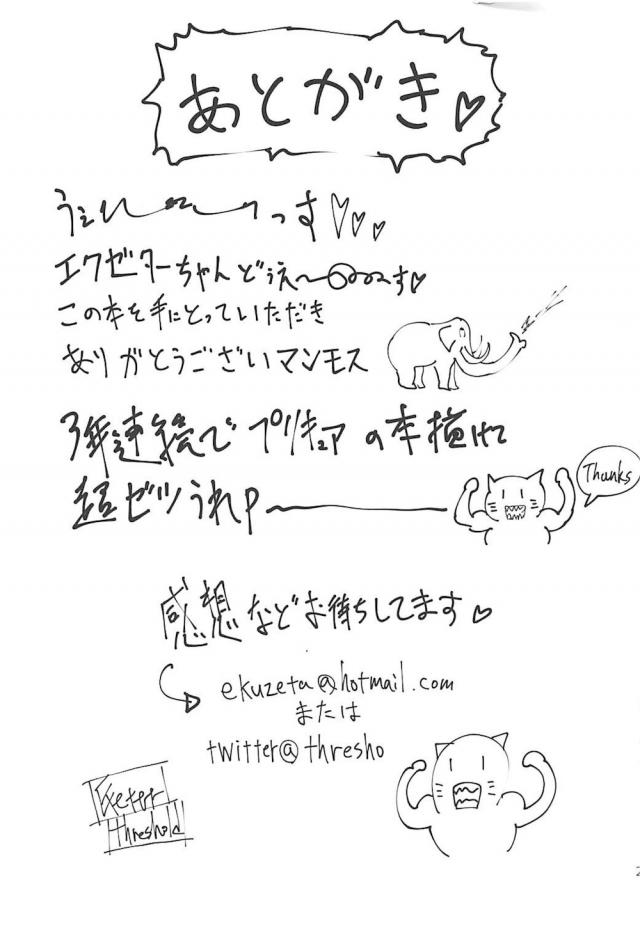 あとがき♡
うぇい〜〜っす♡♡♡
エクゼターちゃんどぅえ〜〜〜す♡
この本を手にとっていただき
ありがとうございマンモス
3年連続でプリキュアの本描けて
超ゼツうれP
Thanks
感想などお待ちしてます♡
ekuzeta@hotmail.com
または
twitter@thresho
Exeter
threshold
2